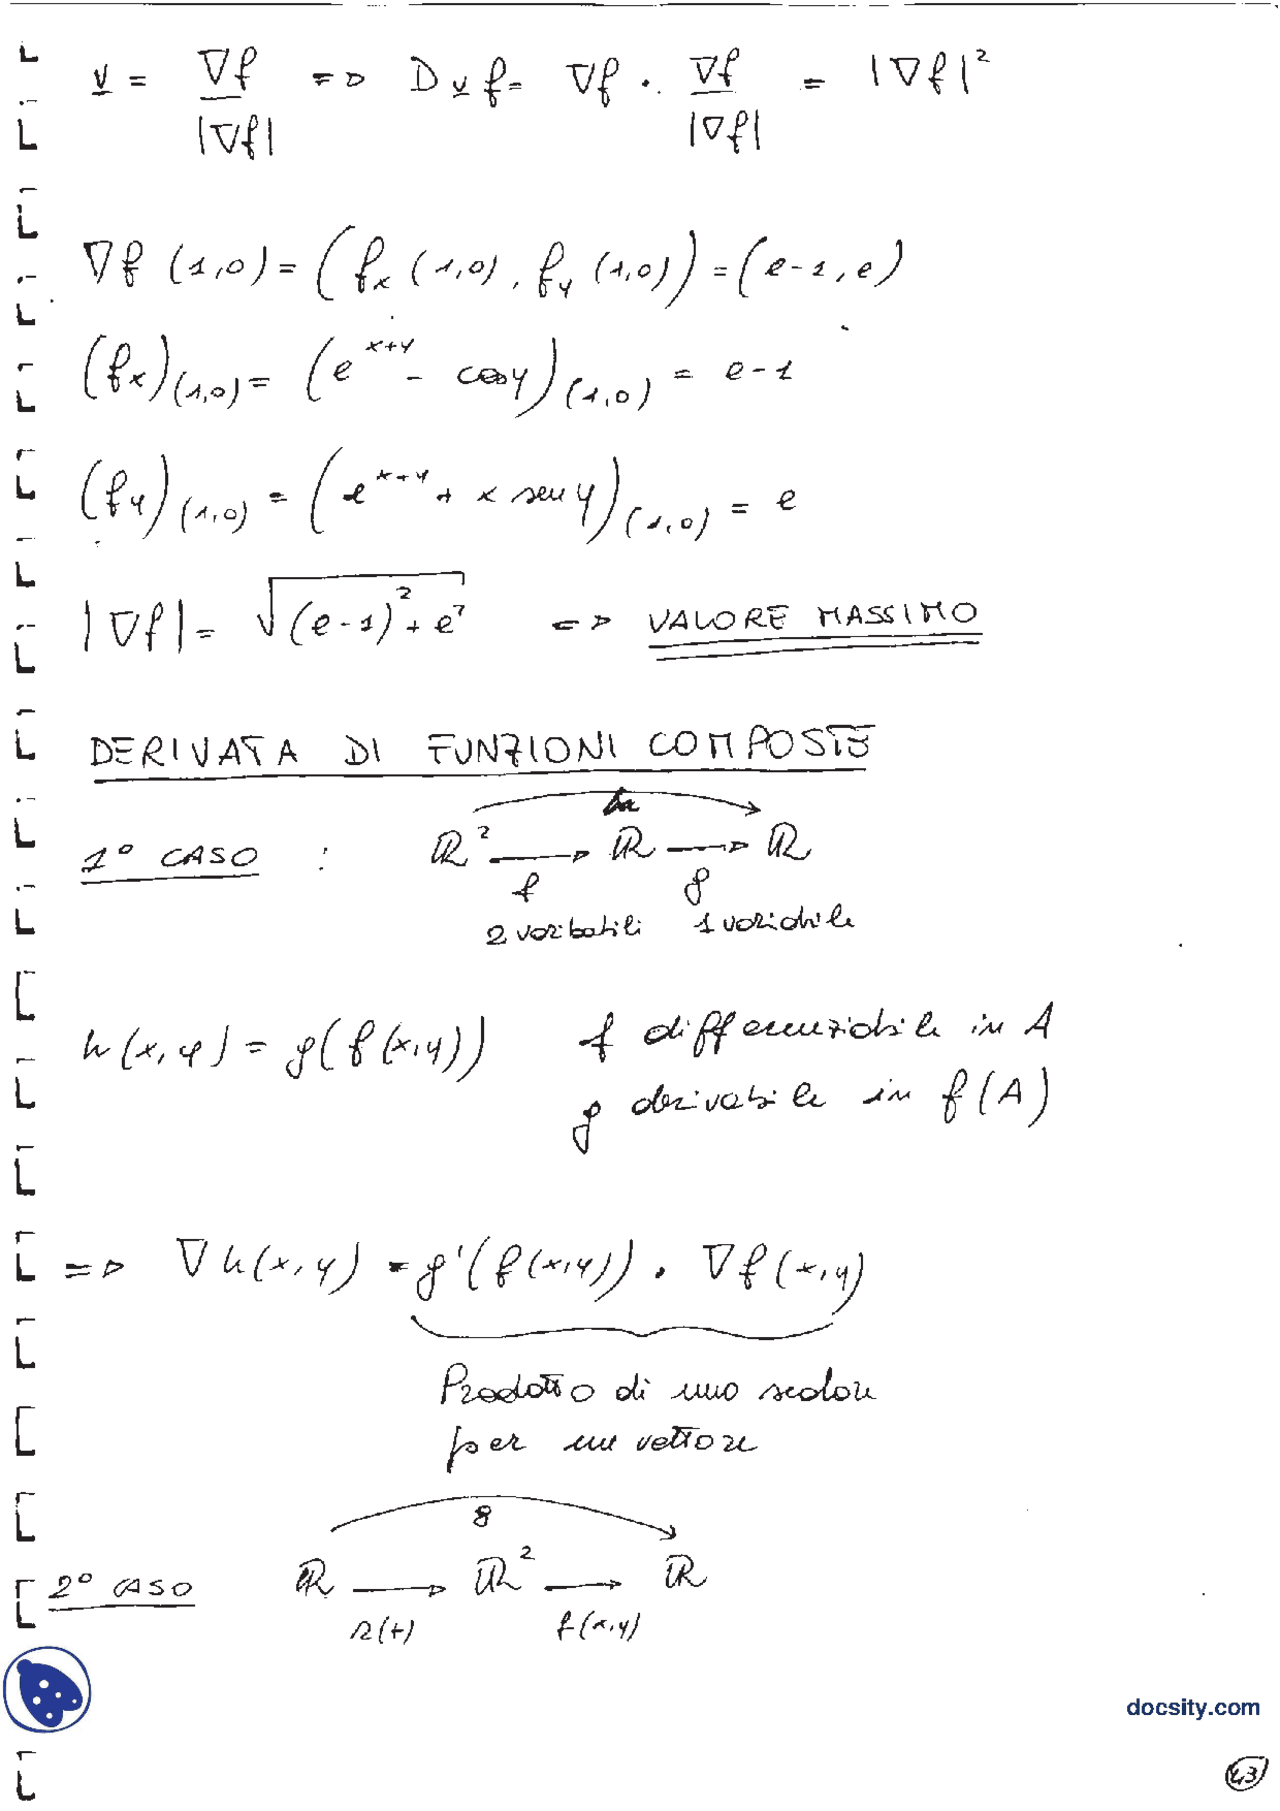 v = ∇f / |∇f| => D_v f = ∇f · ∇f / |∇f| = |∇f|²
∇f (1,0) = (f_x (1,0), f_y (1,0)) = (e-1, e)
(f_x)_(1,0) = (e^(x+y) - cos y)_(1,0) = e-1
(f_y)_(1,0) = (e^(x+y) + x sen y)_(1,0) = e
|∇f| = √((e-1)² + e²) => VALORE MASSIMO
DERIVATA DI FUNZIONI COMPOSTE
h
1° CASO : ℝ² → ℝ → ℝ
f g
2 varibatili 1 variabile
h(x,y) = g(f(x,y)) f differenziabile in A
g derivabile in f(A)
=> ∇h(x,y) = g'(f(x,y)) · ∇f(x,y)
Prodotto di uno scalare
per un vettore
g
2° CASO ℝ → ℝ² → ℝ
r(t) f(x,y)
docsity.com
43